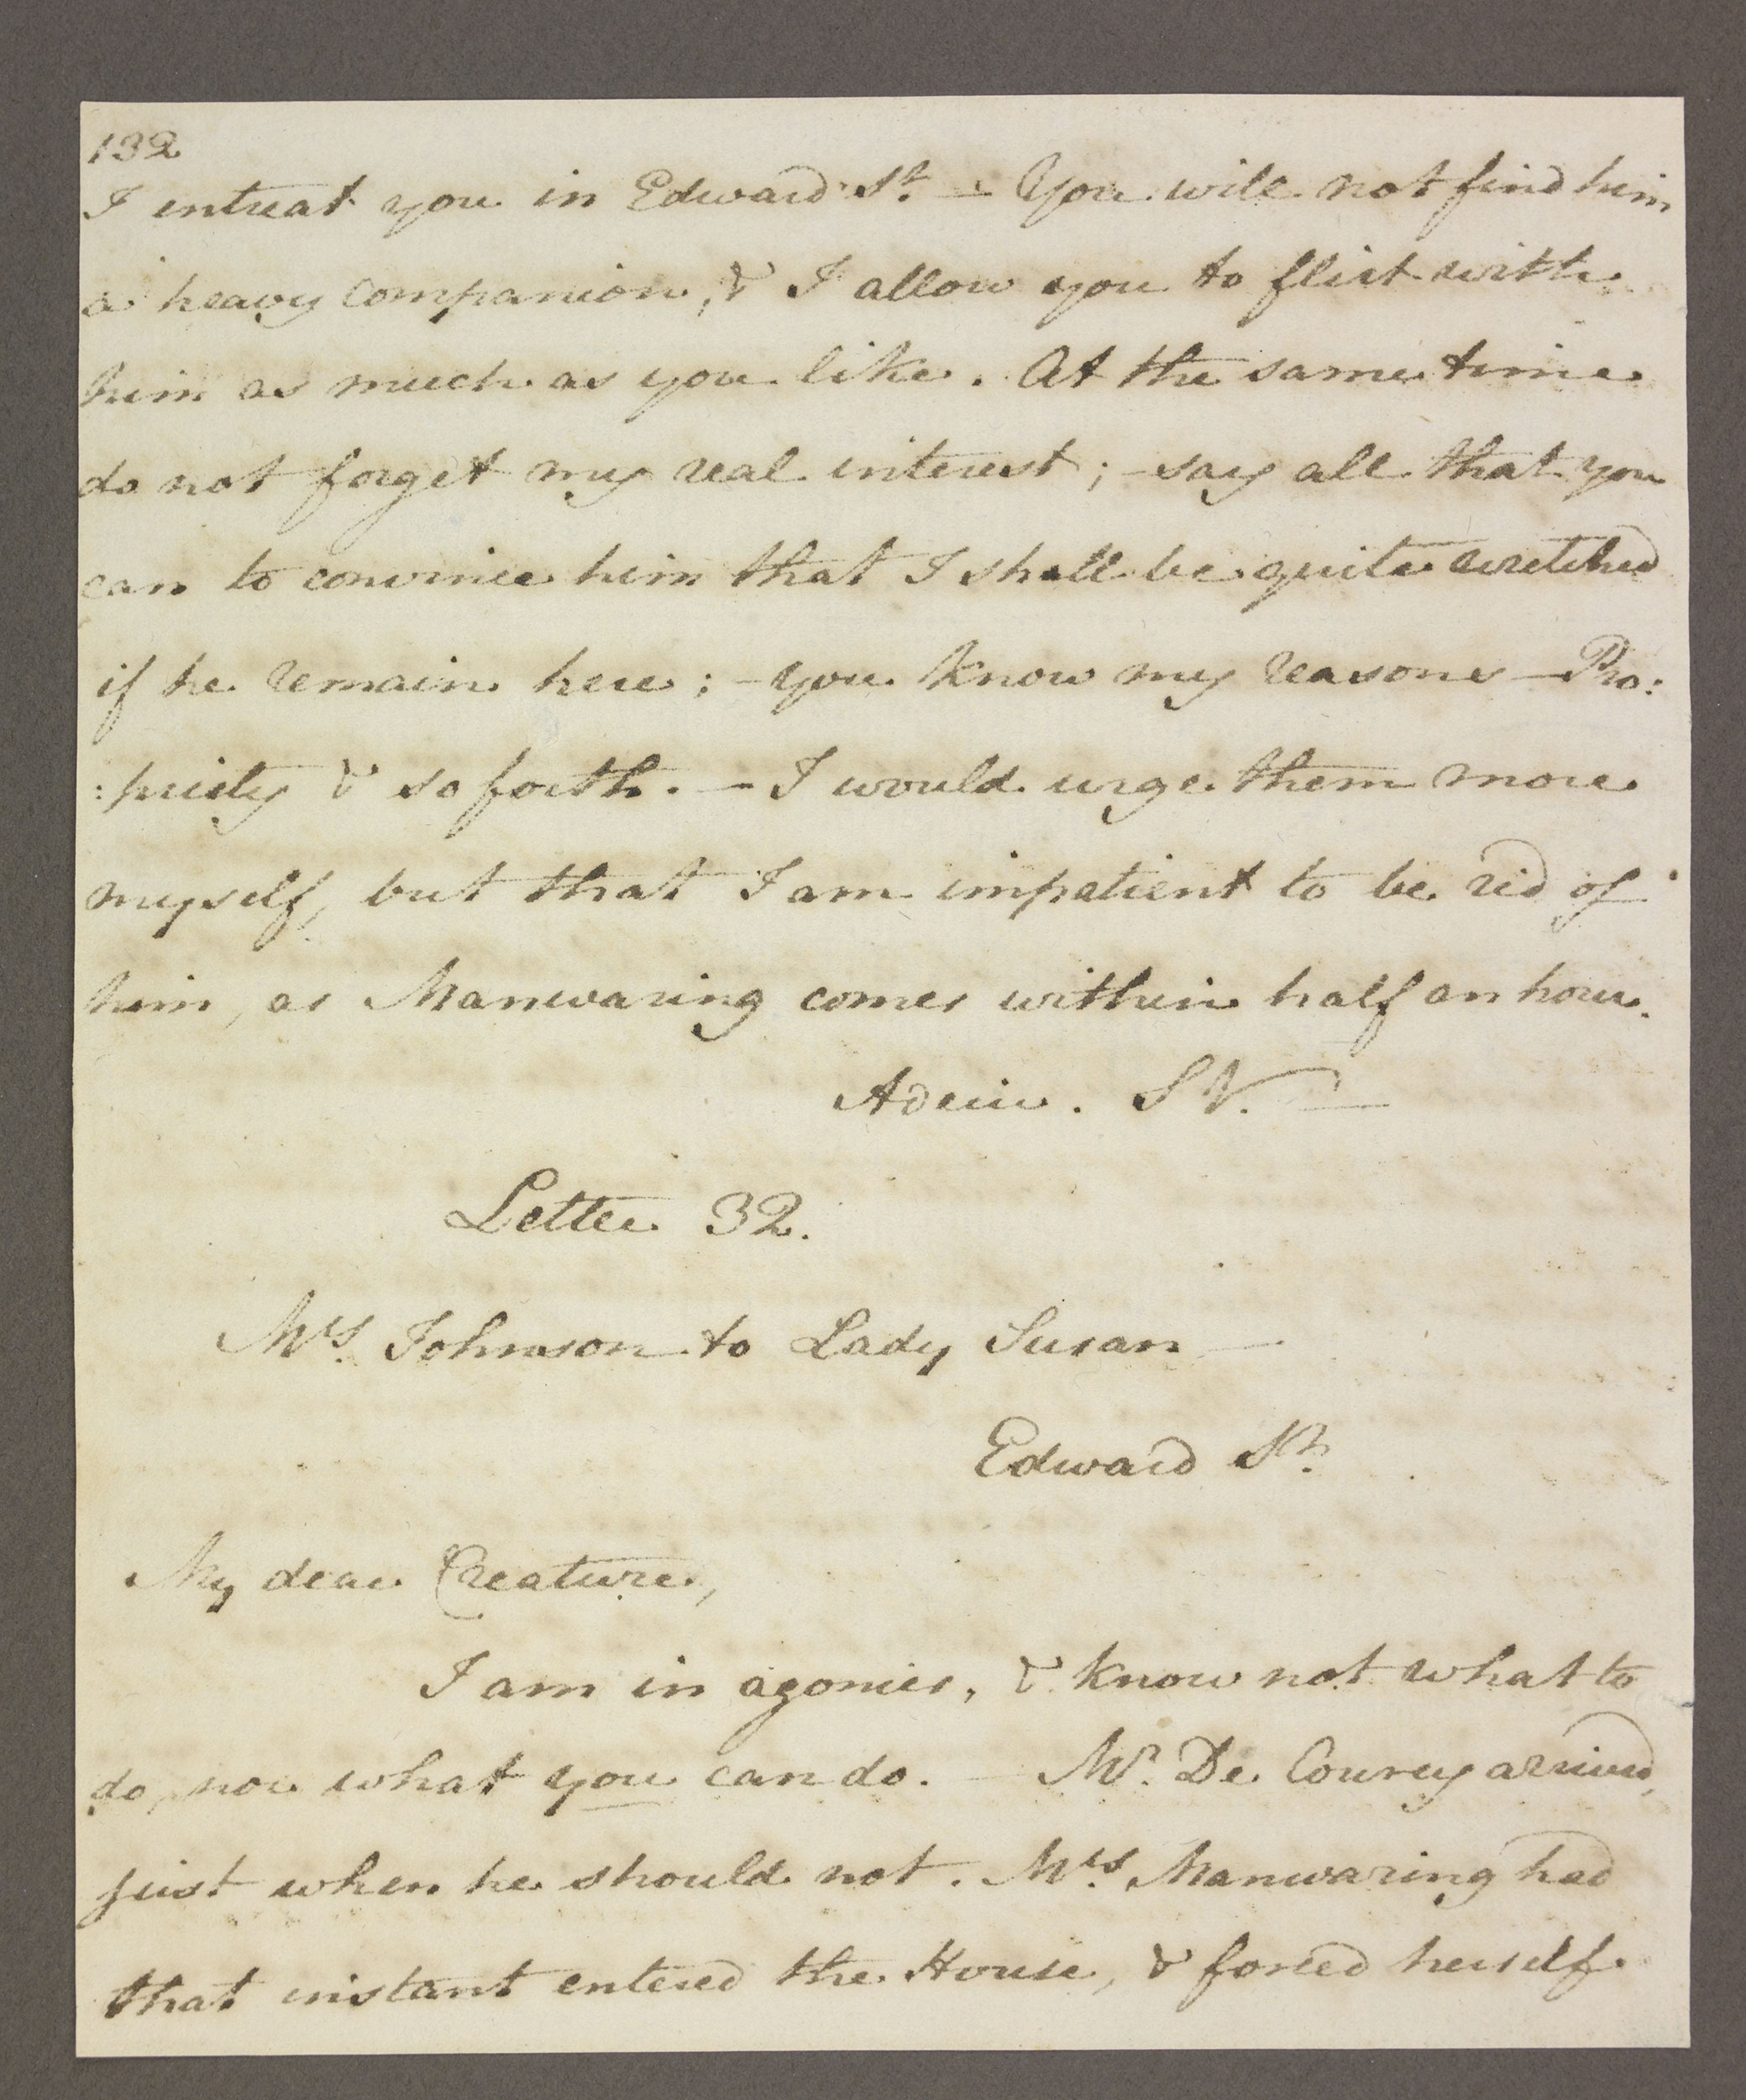 132
I entreat you in Edward St. — You will not find him
a heavy companion, & I allow you to flirt with
him as much as you like. At the same time
do not forget my real interest; — say all that you
can to convince him that I shall be quite wretched
if he remain here; — you know my reasons — Pro:
:priety & so forth. — I would urge them more
myself, but that I am impatient to be rid of
him, as Manwaring comes within half an hour.
Adeiu. S V. —
Letter 32.
Mrs. Johnson to Lady Susan —
Edward St.
My dear Creature,
I am in agonies, & know not what to
do, nor what you can do. — Mr. De Courcy arrived,
just when he should not. Mrs. Manwaring had
that instant entered the House, & forced herself